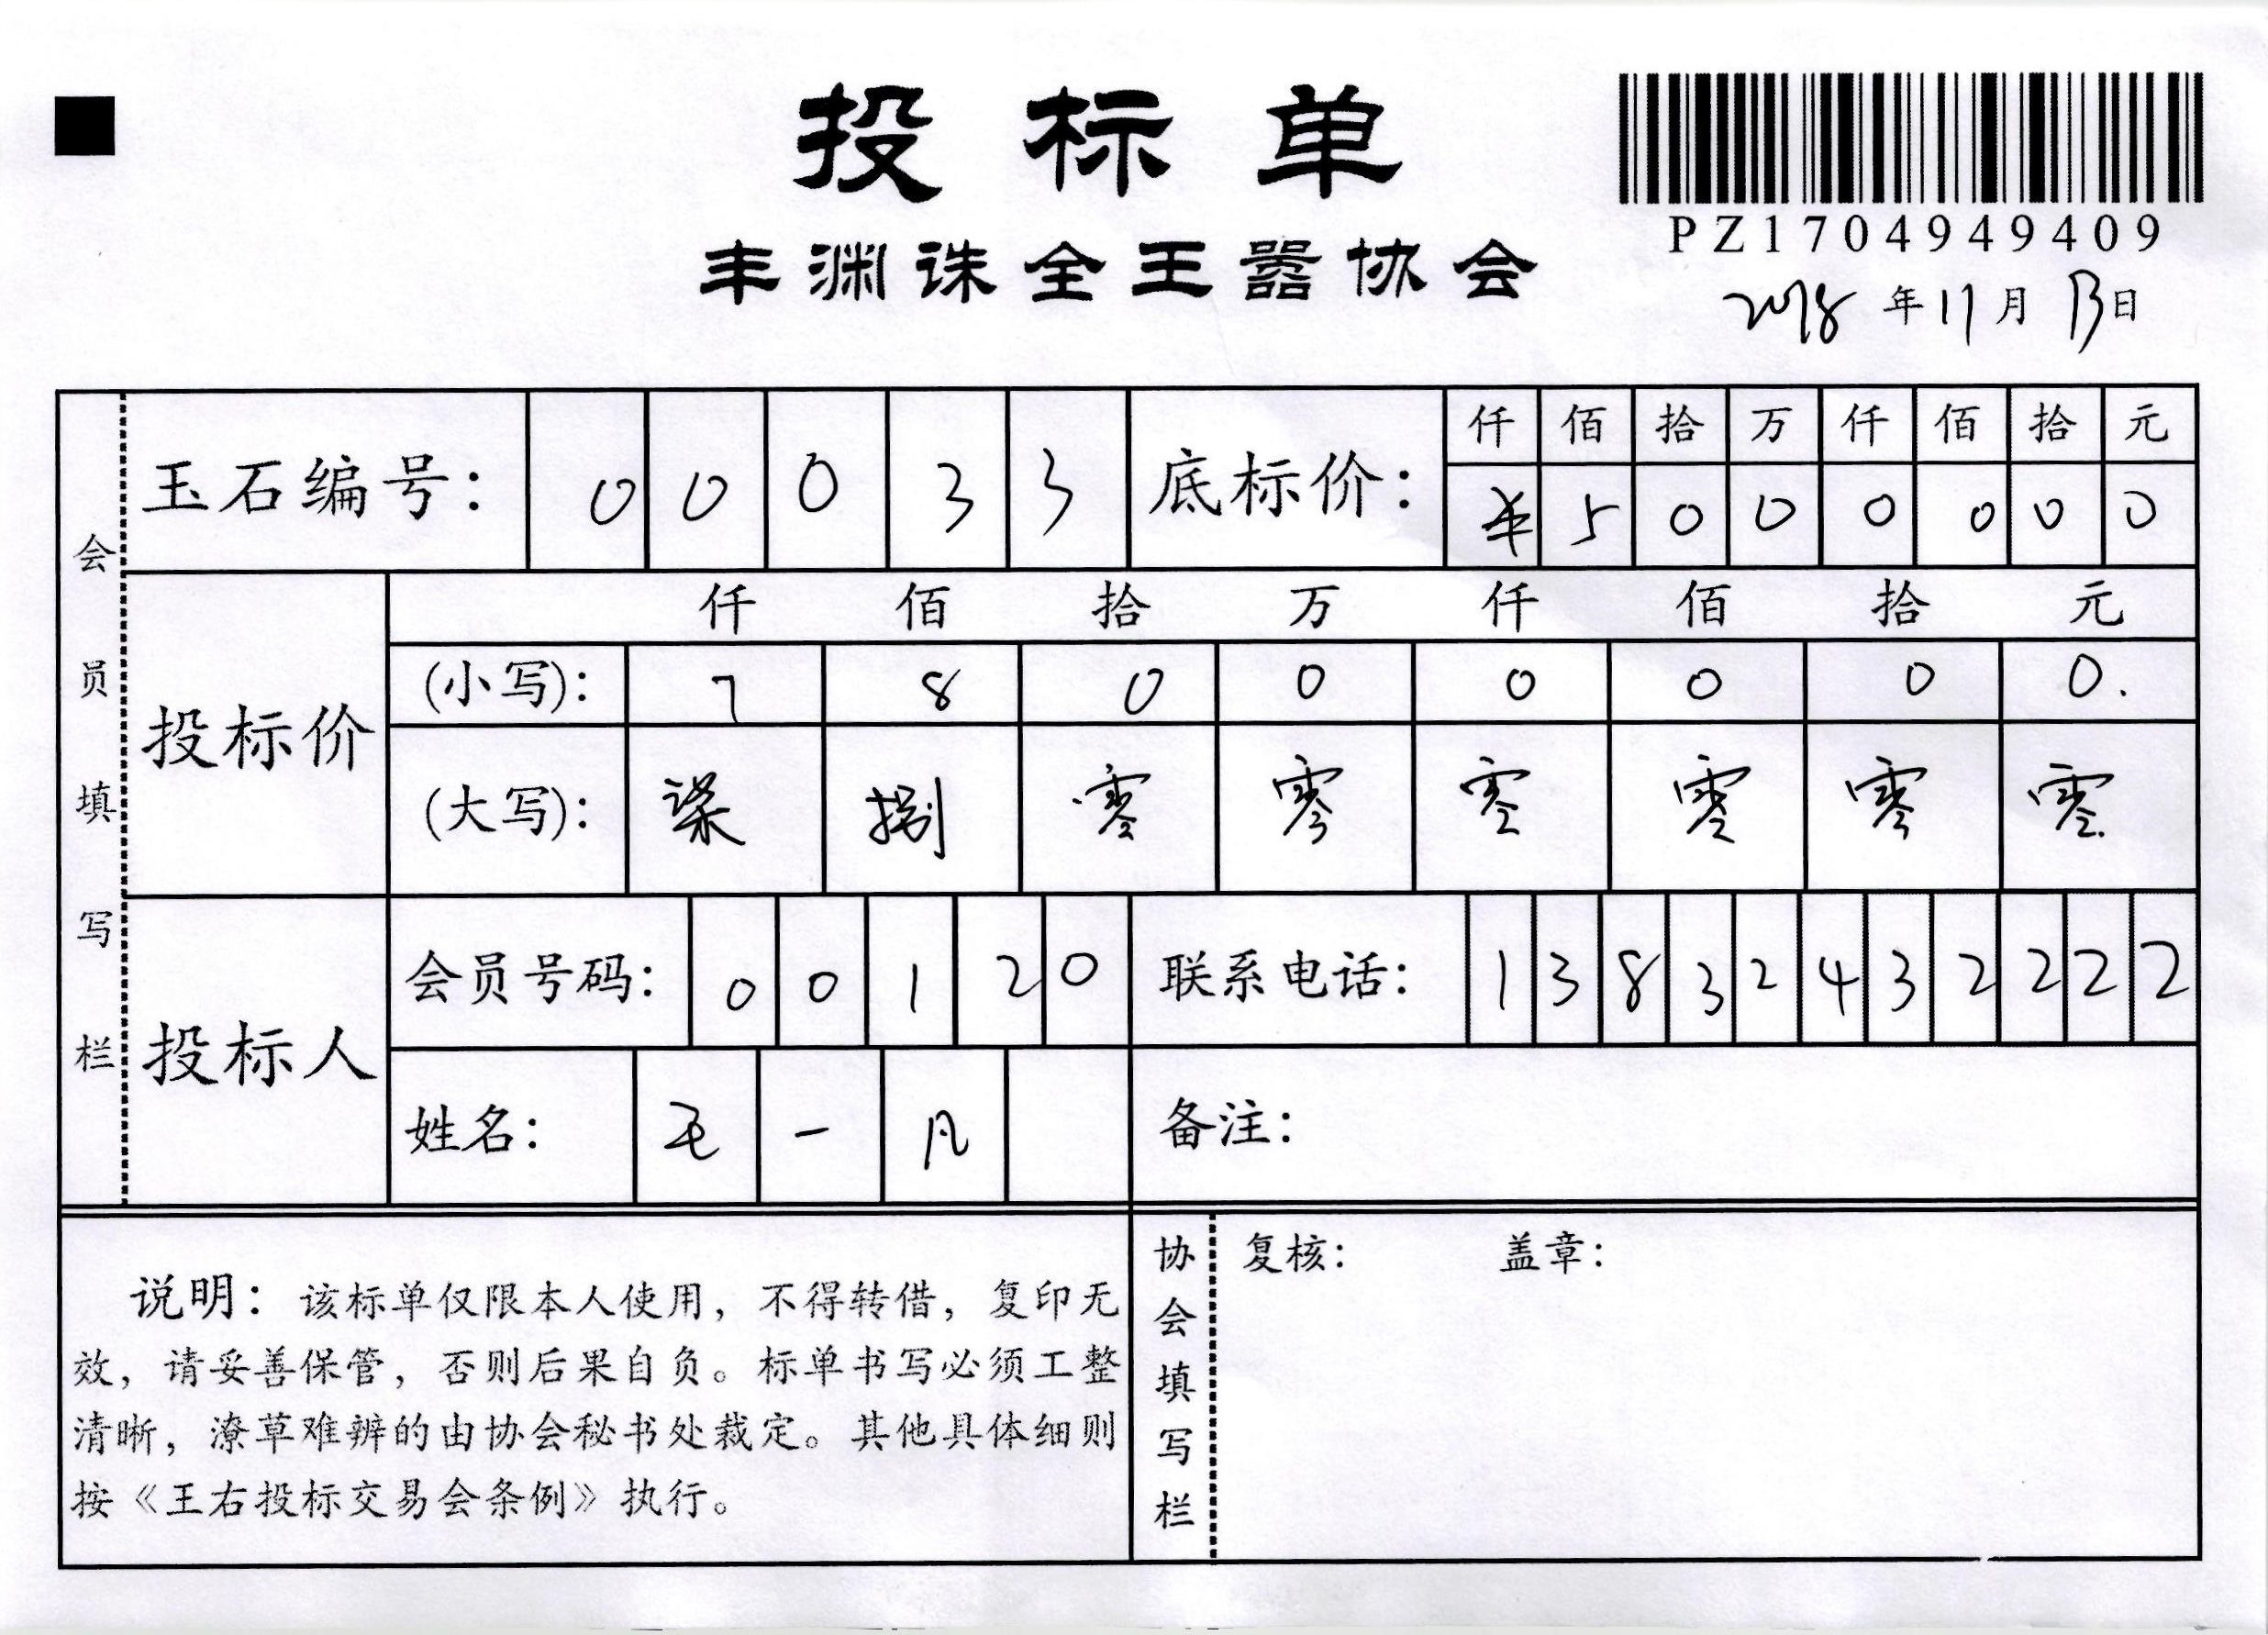 投标单
丰渊诛全王嚣协会
PZ1704949409
2018年11月13日
会员填写栏
玉石编号： 0 0 0 3 3
底标价： 仟 佰 拾 万 仟 佰 拾 元
¥ 5 0 0 0 0 0 0
投标价
仟 佰 拾 万 仟 佰 拾 元
(小写)： 7 8 0 0 0 0 0 0.
(大写)： 柒 捌 零 零 零 零 零 零
投标人
会员号码： 0 0 1 2 0
联系电话： 1 3 8 3 2 4 3 2 2 2 2
姓名： 毛 一 凡
备注：
说明：该标单仅限本人使用，不得转借，复印无
效，请妥善保管，否则后果自负。标单书写必须工整
清晰，潦草难辨的由协会秘书处裁定。其他具体细则
按《王右投标交易会条例》执行。
协会填写栏
复核： 盖章：